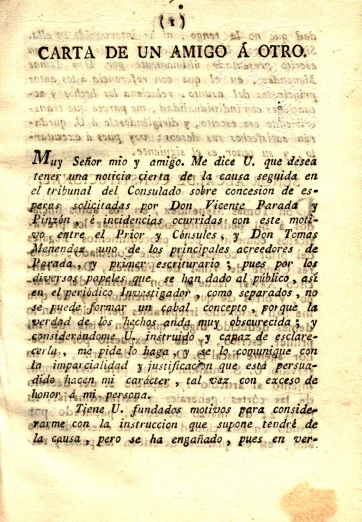 (1)
CARTA DE UN AMIGO Á OTRO.
Muy Señor mio y amigo. Me dice U. que desea
tener una noticia cierta de la causa seguida en
el tribunal del Consulado sobre concesion de es-
peras solicitadas por Don Vicente Parada y
Pinzón, é incidencias ocurridas con este moti-
vo entre el Prior y Cónsules, y Don Tomas
Menendez, uno de los principales acreedores de
Parada, y primer escriturario; pues por los
diversos papeles que se han dado al público, así
en el periódico Investigador, como separados, no
se puede formar un cabal concepto, porque la
verdad de los hechos anda muy obscurecida; y
considerándome U. instruido y capaz de esclare-
cerla, me pide lo haga, y se lo comunique con
la imparcialidad y justificacion que está persua-
dido hacen mi carácter, tal vez con exceso de
honor á mi persona.
Tiene U. fundados motivos para conside-
rarme con la instruccion que supone tendré de
la causa, pero se ha engañado, pues en ver-